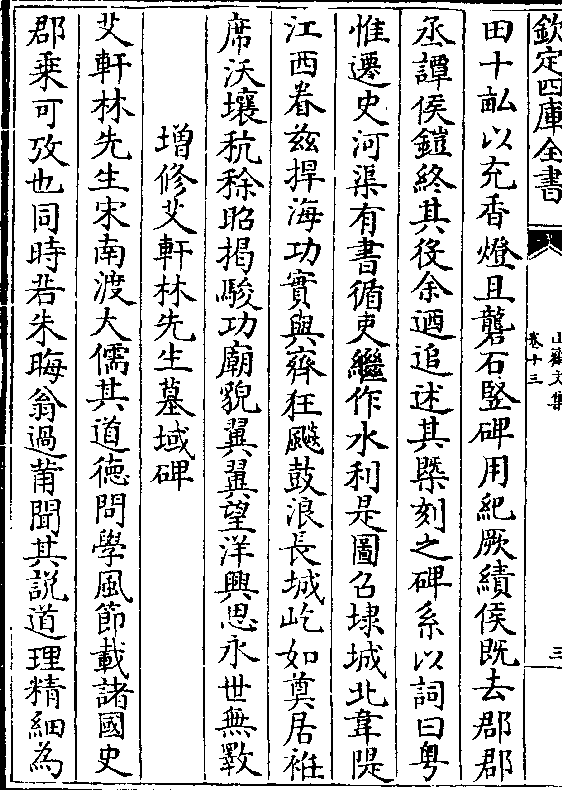 欽定四庫全書
卷十三
三
田十畝以充香燈且礱石竪碑用紀厥績侯既去郡郡
丞譚侯鎧終其役余迺追述其槩刻之碑系以詞曰粤
惟遷史河渠有書循吏繼作水利是圖召埭城北韋隄
江西眷兹捍海功實與齊狂飈鼓浪長城屹如奠居袵
席沃壤秔稌昭掲駿功廟貌翼翼望洋興思永世無斁
增修艾軒林先生墓域碑
艾軒林先生宋南渡大儒其道徳問學風節載諸國史
郡乗可攷也同時若朱晦翁過莆聞其説道理精細為